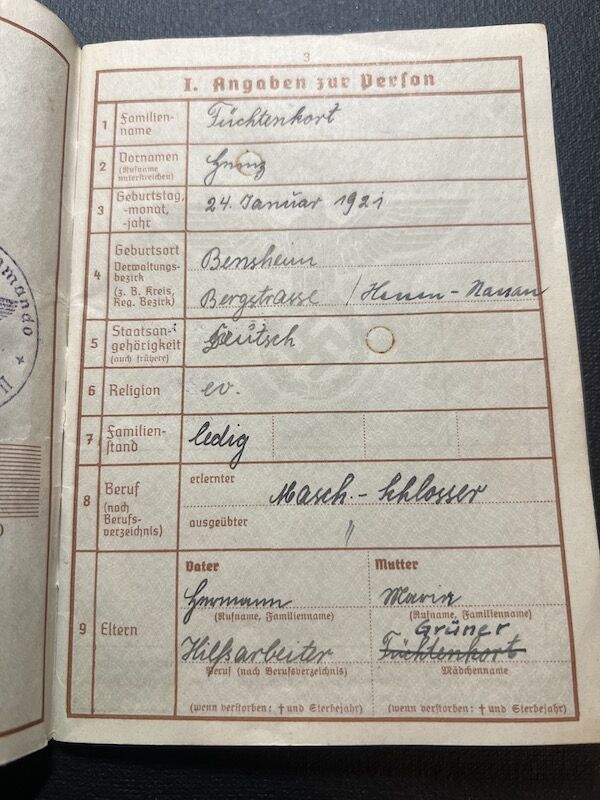 3
I. Angaben zur Person
1 Familien-
name
Füchtenkort
2 Vornamen
(Rufname
unterstreichen)
Heinz
3 Geburtstag,
-monat,
-jahr
24. Januar 1921
4 Geburtsort
Verwaltungs-
bezirk
(z. B. Kreis,
Reg. Bezirk)
Bensheim
Bergstrasse / Hessen-Nassau
5 Staatsan-
gehörigkeit
(auch frühere)
Deutsch
6 Religion
ev.
7 Familien-
stand
ledig
8 Beruf
(nach
Berufs-
verzeichnis)
erlernter
Masch.-Schlosser
ausgeübter
"
9 Eltern
Vater
Hermann
(Rufname, Familienname)
Hilfsarbeiter
Beruf (nach Berufsverzeichnis)
(wenn verstorben: † und Sterbejahr)
Mutter
Maria
(Rufname, Familienname)
Grüner
Füchtenkort
Mädchenname
(wenn verstorben: † und Sterbejahr)